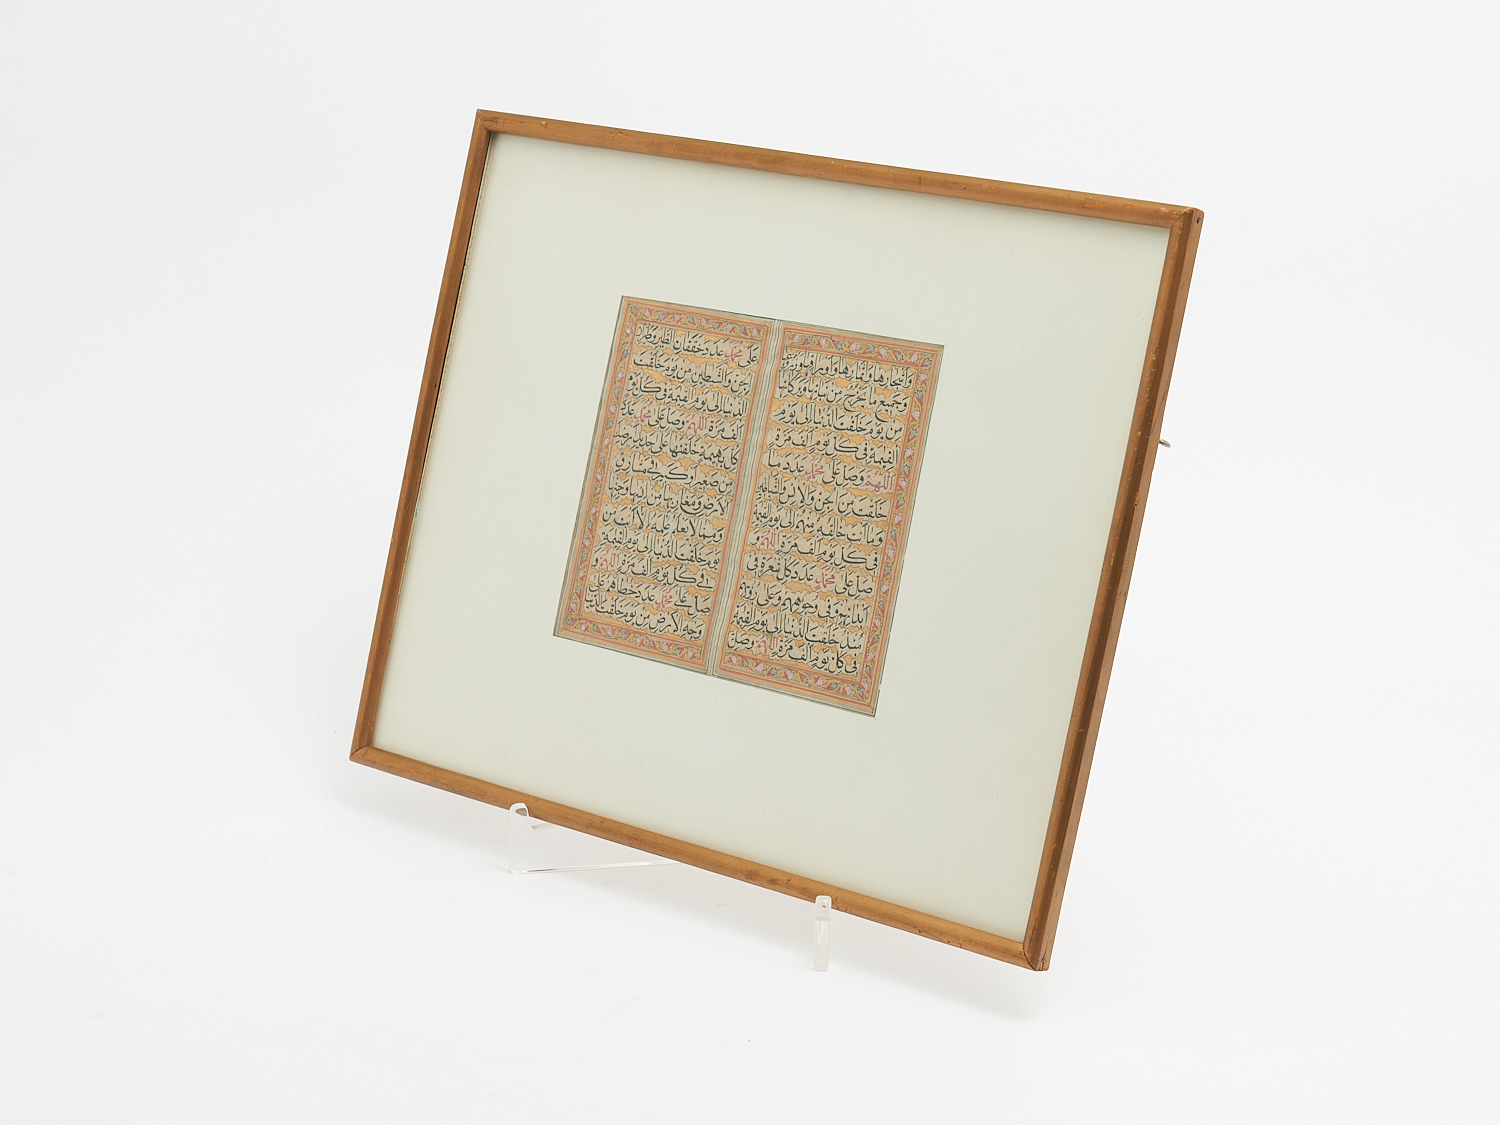 وَأَشْجَارِهَا وَثِمَارِهَا وَأَوْرَاقِهَا وَزُرُوعِهَا
وَجَمِيعِ مَا يَخْرُجُ مِنْ نَبَاتِهَا وَبَرَكَاتِهَا
مِنْ يَوْمِ خَلَقْتَ الدُّنْيَا إِلَى يَوْمِ
الْقِيمَةِ فِي كُلِّ يَوْمٍ أَلْفَ مَرَّةٍ
اللّٰهُمَّ وَصَلِّ عَلَى مُحَمَّدٍ عَدَدَ مَا
خَلَقْتَ مِنَ الْجِنِّ وَالْإِنْسِ وَالشَّيَاطِينِ
وَمَا أَنْتَ خَالِقُهُ مِنْهُمْ إِلَى يَوْمِ الْقِيمَةِ
فِي كُلِّ يَوْمٍ أَلْفَ مَرَّةٍ اللّٰهُمَّ وَ
صَلِّ عَلَى مُحَمَّدٍ عَدَدَ كُلِّ شَعْرَةٍ فِي
أَبْدَانِهِمْ وَفِي وُجُوهِهِمْ وَعَلَى رُؤُسِهِمْ
مُنْذُ خَلَقْتَ الدُّنْيَا إِلَى يَوْمِ الْقِيمَةِ
فِي كُلِّ يَوْمٍ أَلْفَ مَرَّةٍ اللّٰهُمَّ وَصَلِّ
عَلَى مُحَمَّدٍ عَدَدَ خَفَقَانِ الطَّيْرِ وَطَيَرَانِ
الْجِنِّ وَالشَّيٰطِينِ مِنْ يَوْمِ خَلَقْتَ
الدُّنْيَا إِلَى يَوْمِ الْقِيمَةِ فِي كُلِّ يَوْمٍ
أَلْفَ مَرَّةٍ اللّٰهُمَّ وَصَلِّ عَلَى مُحَمَّدٍ عَدَدَ
كُلِّ بَهِيمَةٍ خَلَقْتَهَا عَلَى جَدِيدِ أَرْضِكَ
مِنْ صَغِيرٍ أَوْ كَبِيرٍ فِي مَشَارِقِ
الْأَرْضِ وَمَغَارِبِهَا مِنْ إِنْسِهَا وَجِنِّهَا
وَمِمَّا لَا يَعْلَمُ عِلْمَهُ إِلَّا أَنْتَ مِنْ
يَوْمِ خَلَقْتَ الدُّنْيَا إِلَى يَوْمِ الْقِيمَةِ
فِي كُلِّ يَوْمٍ أَلْفَ مَرَّةٍ اللّٰهُمَّ وَ
صَلِّ عَلَى مُحَمَّدٍ عَدَدَ خُطَاهُمْ عَلَى
وَجْهِ الْأَرْضِ مِنْ يَوْمِ خَلَقْتَ الدُّنْيَا